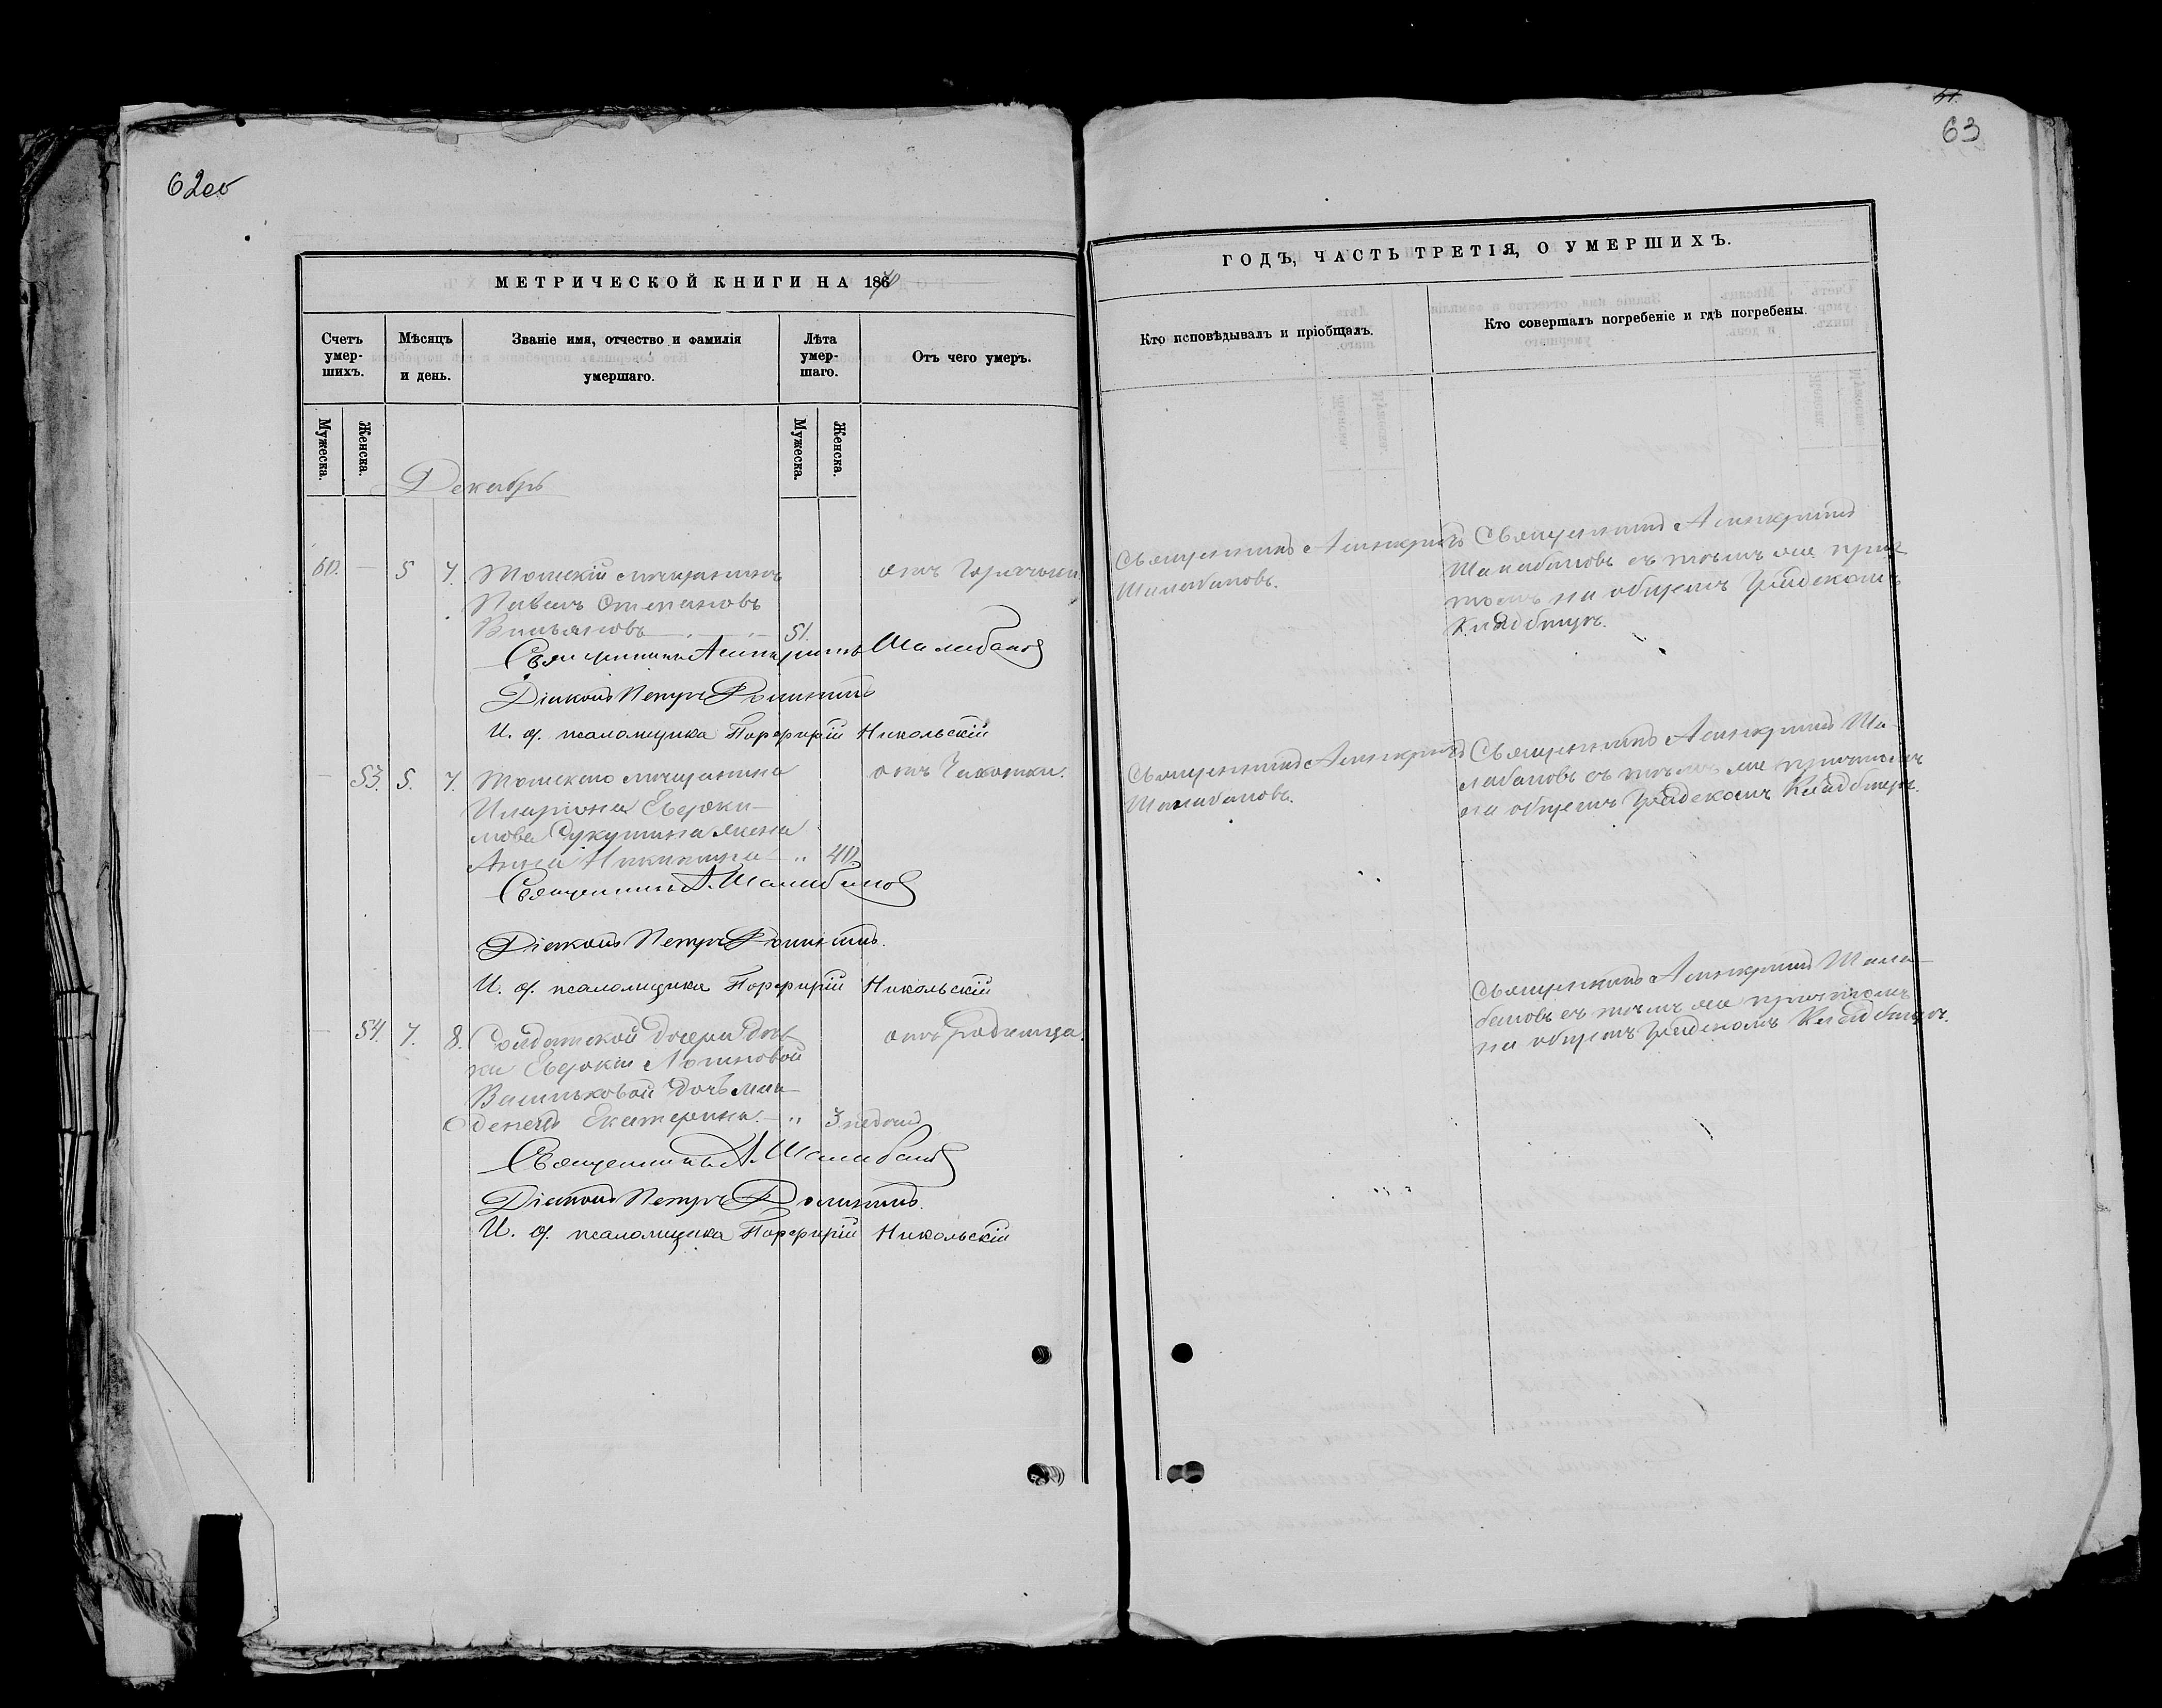 62об
МЕТРИЧЕСКОЙ КНИГИ НА 1870
Счетъ умер-шихъ.
Мѣсяцъ и день.
Званіе имя, отчество и фамилія умершаго.
Лѣта умер-шаго.
Отъ чего умеръ.
Мужеска.
Женска.
Мужеска.
Женска.
Декабрь
60. — 5 7. Томскій мѣщанинъ отъ Горячки.
Павелъ Степановъ
51.
Священникъ Асинкритъ Шалабановъ
Діаконъ Петръ
И. д. псаломщика Порфирій Никольскій
— 53. 5. 7. Томскаго мѣщанина отъ Чахотки.
Иларіона Евдоки-
мова жена
Анна Никитина — „ 40.
Священникъ А. Шалабановъ
Діаконъ Петръ
И. д. псаломщика Порфирій Никольскій
— 54. 7. 8. Солдатской дочери дѣв- отъ Родимца.
ки Евдокіи Логиновой
дочь мла-
денецъ Екатерина. — „ 3 недѣль
Священникъ А. Шалабановъ
Діаконъ Петръ
И. д. псаломщика Порфирій Никольскій
63
ГОДЪ, ЧАСТЬ ТРЕТІЯ, О УМЕРШИХЪ.
Кто исповѣдывалъ и пріобщалъ.
Кто совершалъ погребеніе и гдѣ погребены.
Священникъ Асинкритъ
Шалабановъ.
Священникъ Асинкритъ
Шалабановъ съ тѣмъ же прич-
томъ на общемъ Градскомъ
Кладбищѣ.
Священникъ Асинкритъ
Шалабановъ.
Священникъ Асинкритъ Ша-
лабановъ съ тѣмъ же причтомъ
на общемъ Градскомъ Кладбищѣ.
Священникъ Асинкритъ Шала-
бановъ съ тѣмъ же причтомъ
на общемъ Градскомъ Кладбищѣ.